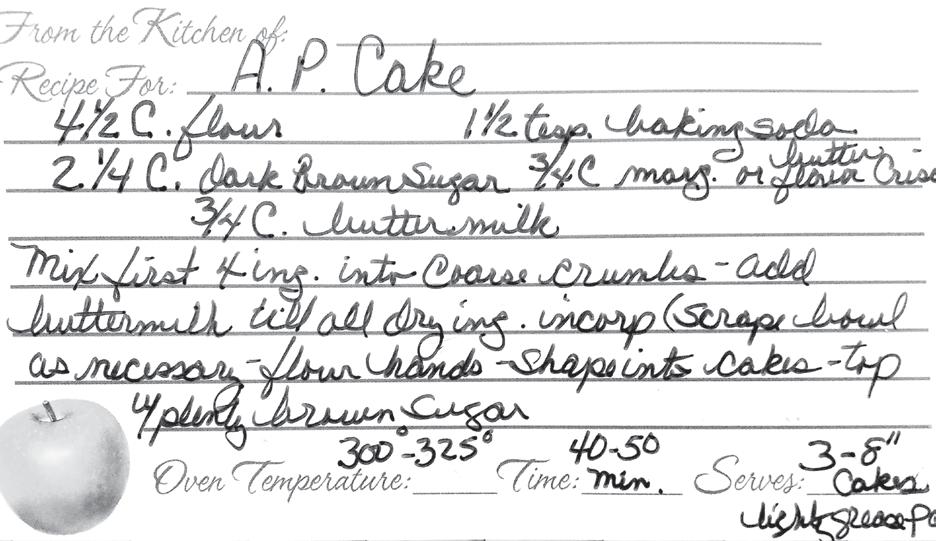 From the Kitchen of:
Recipe For: A. P. Cake
4 1/2 C. flour 1 1/2 tesp. baking soda
2 1/4 C. dark Brown Sugar 3/4 C marg. or butter flavor Cris
3/4 C. buttermilk
Mix first 4 ing. into Coarse crumbs - add
buttermilk till all dry ing. incorp (scrape bowl
as necessary - flour hands - shape into cakes - top
w/ plenty brown sugar
Oven Temperature: 300° - 325° Time: 40-50 min. Serves: 3 - 8" Cakes
lightly grease